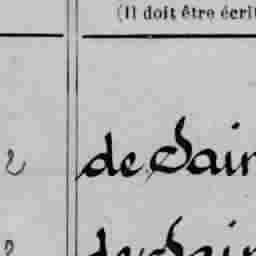 (Il doit être écrit
2 de Sain
2 de Sain